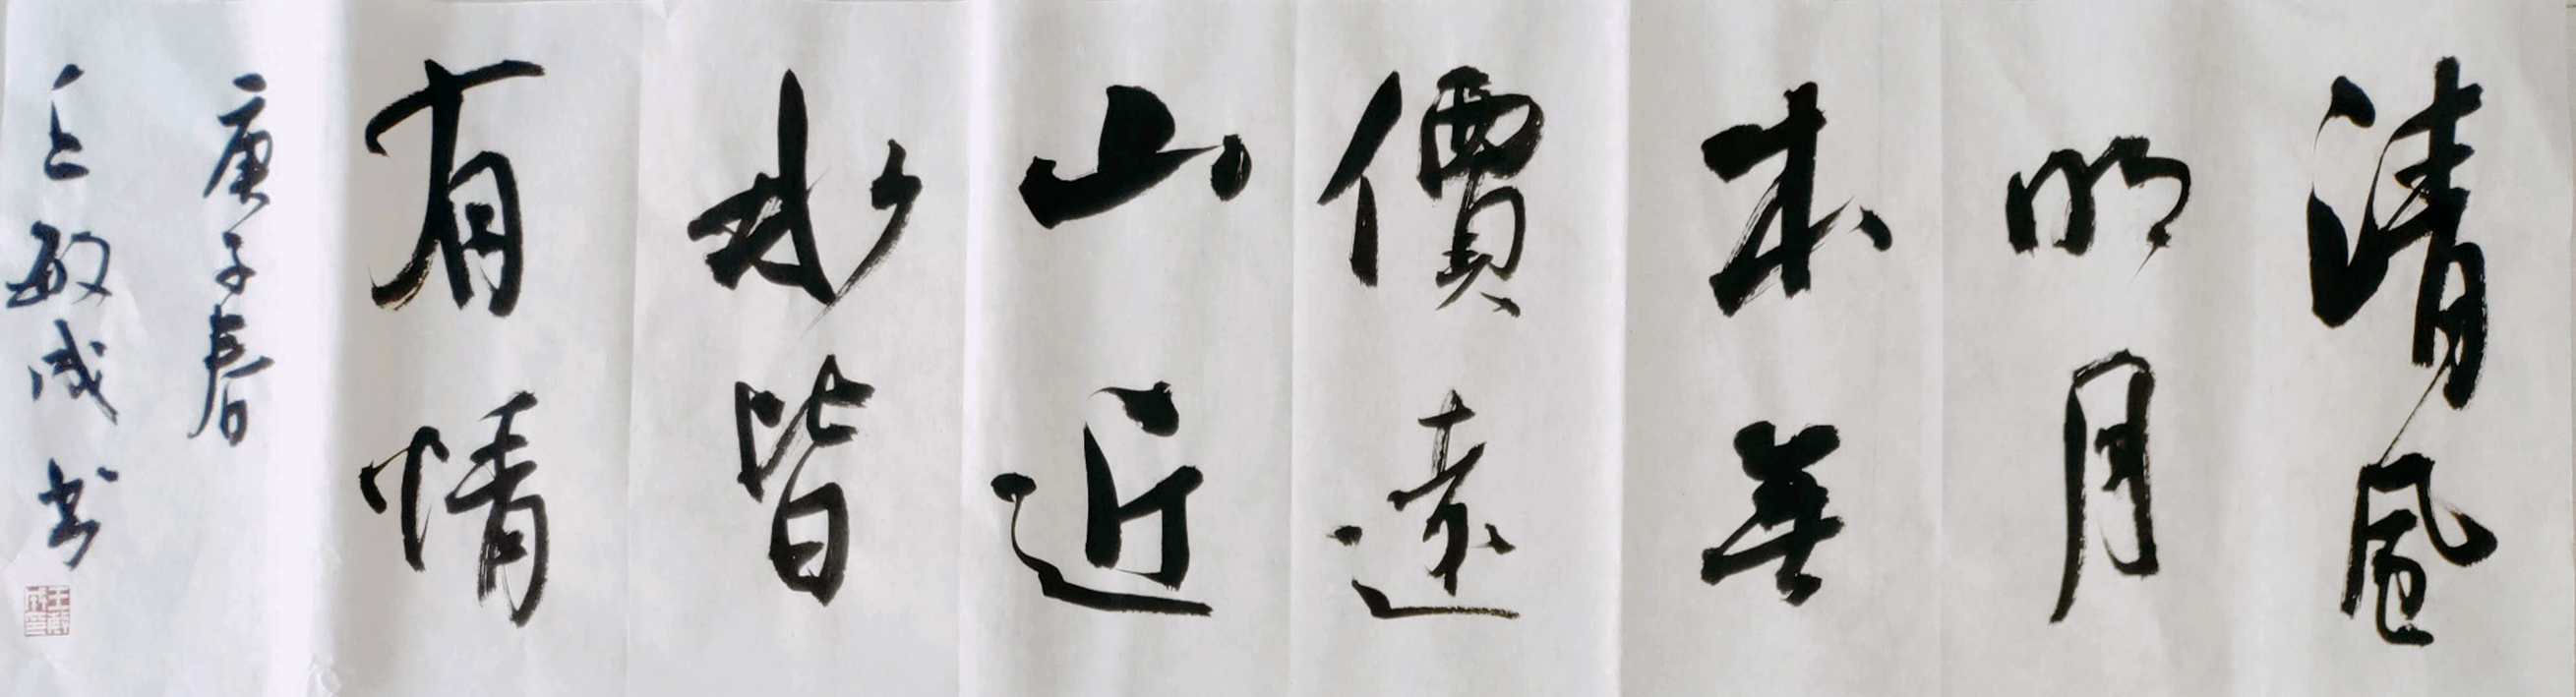 清風
明月
本無
價遠
山近
水皆
有情
庚子春
王敏成书
王敏成印